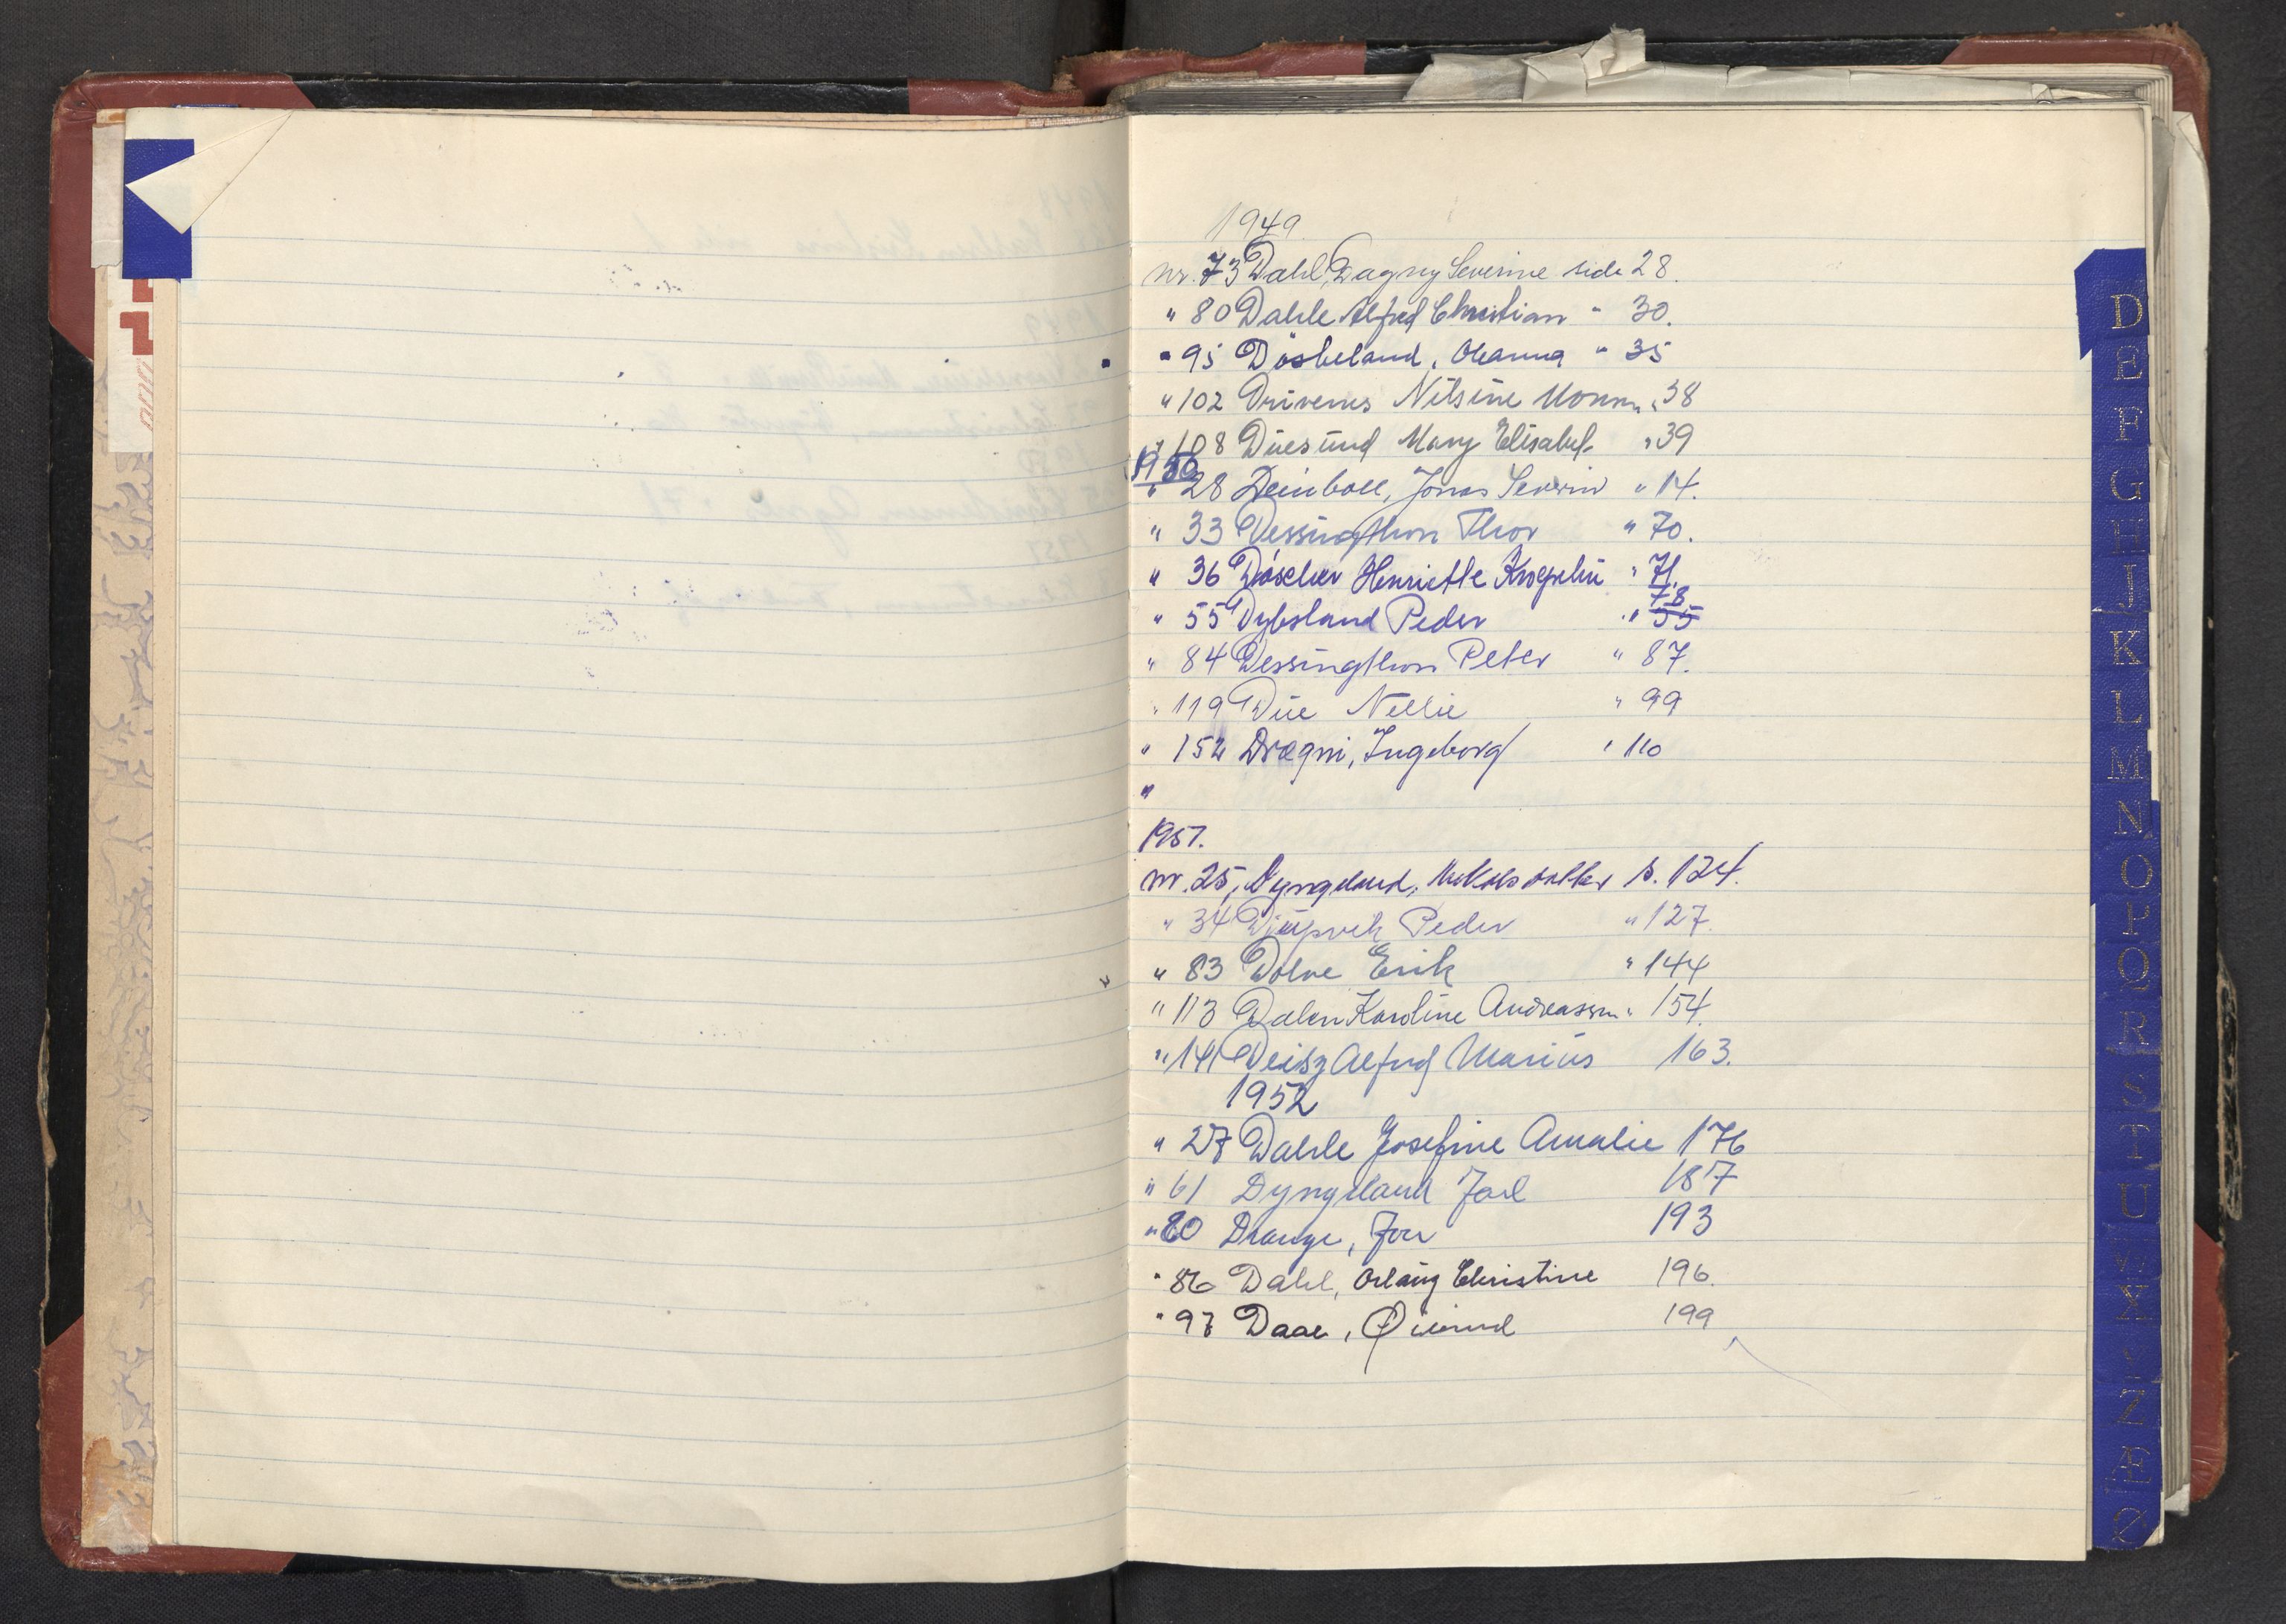 1949
nr. 73 Dahl, Dagny Severine side 28.
" 80 Dahle Alfred Christian " 30.
" 95 Døsheland, Oleanna " 35
" 102 Drivenes Nilsine Monsen " 38
" 108 Duesund Mary Elisabet " 39
1950
" 28 Deinboll, Jonas Severin " 14.
" 33 Dessingthon Thor " 70.
" 36 Døscher Henriette Kroepelin " 71.
" 55 Dybsland Peder " 55 78
" 84 Dessingthon Peter " 87.
" 119 Due Nellie " 99
" 152 Drægni, Ingeborg " 110
"
1951.
nr. 25, Dyngeland, datter s. 124.
" 34 Djupvik Peder " 127.
" 83 Dolve Erik " 144
" 113 Dalen Karoline Andreassen " 154.
" 141 Alfred Marius 163.
1952
" 27 Dahle Josefine Amalie 176
" 61 Dyngeland Joel 187
" 80 Drange, Jon 193
" 86 Dahl, Aslaug Christine 196.
" 97 Daae, Øivind 199
D
E
F
G
H
I
J
K
L
M
N
O
P
Q
R
S
T
U
Z
Æ
Ø